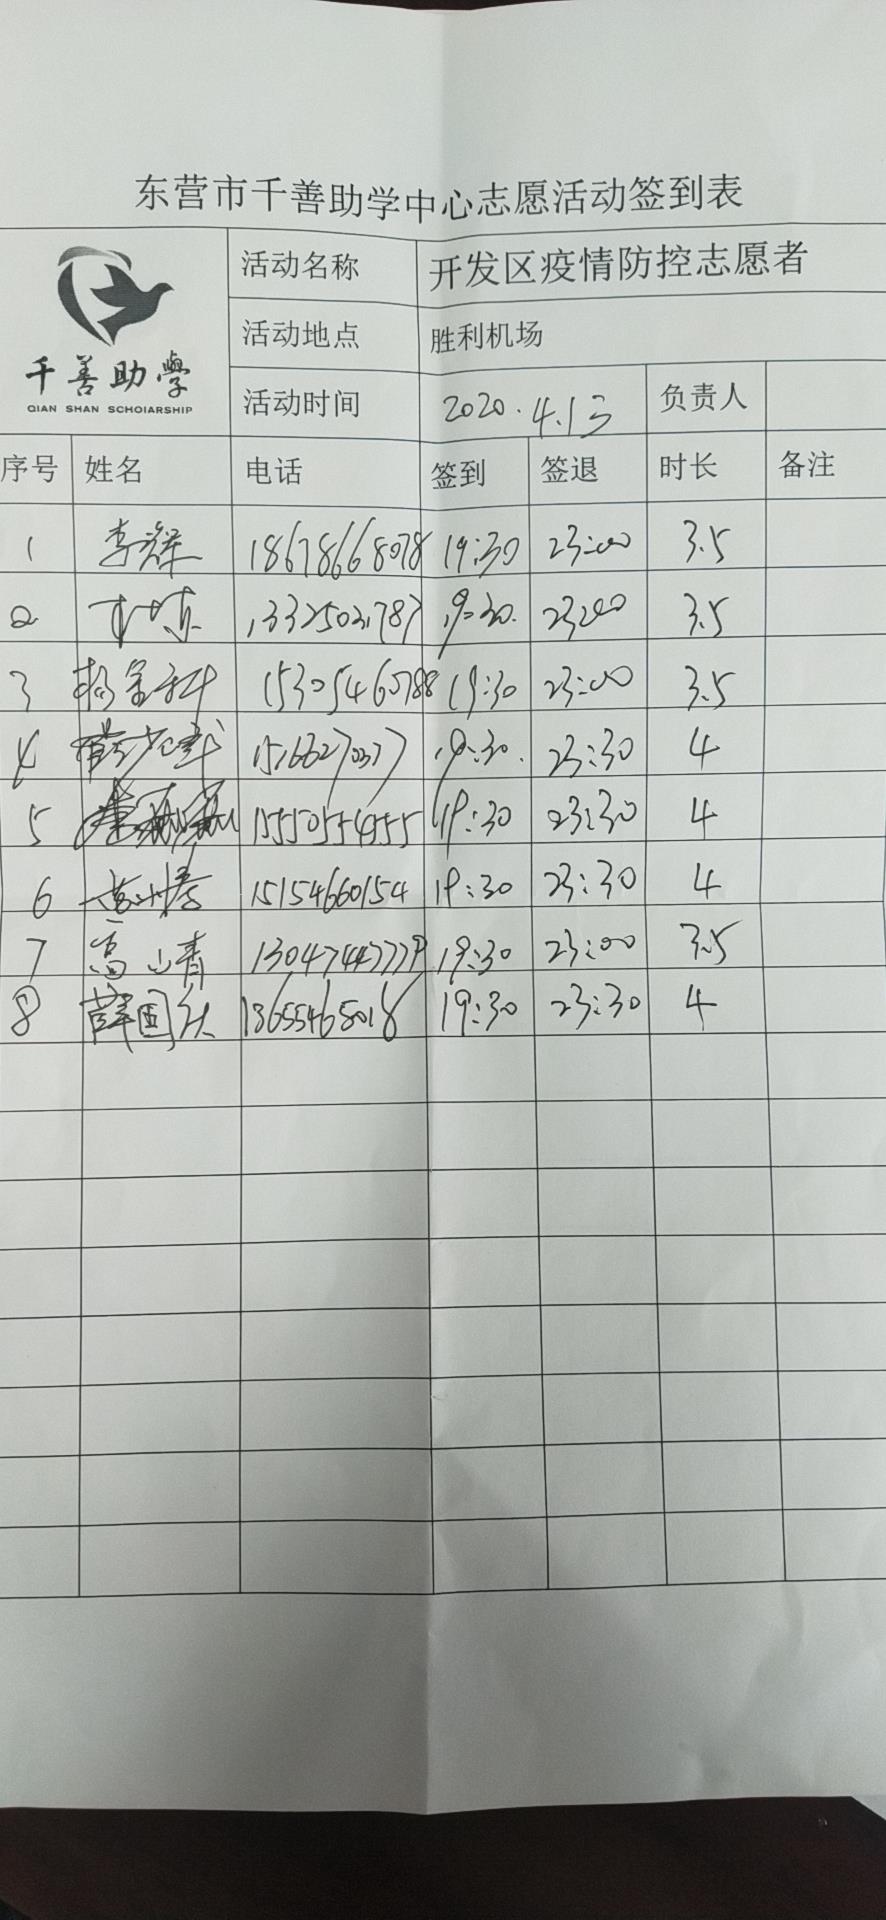 东营市千善助学中心志愿活动签到表
千善助學
QIAN SHAN SCHOIARSHIP
活动名称 开发区疫情防控志愿者
活动地点 胜利机场
活动时间 2020.4.13 负责人
序号 姓名 电话 签到 签退 时长 备注
1 李辉 18678668078 19:30 23:00 3.5
2 13325021787 19:30 23:00 3.5
3 15305460788 19:30 23:00 3.5
4 15266270377 19:30 23:30 4
5 15550554555 19:30 23:30 4
6 15154660154 19:30 23:30 4
7 高山青 13047447779 19:30 23:00 3.5
8 薛国 18655465018 19:30 23:30 4